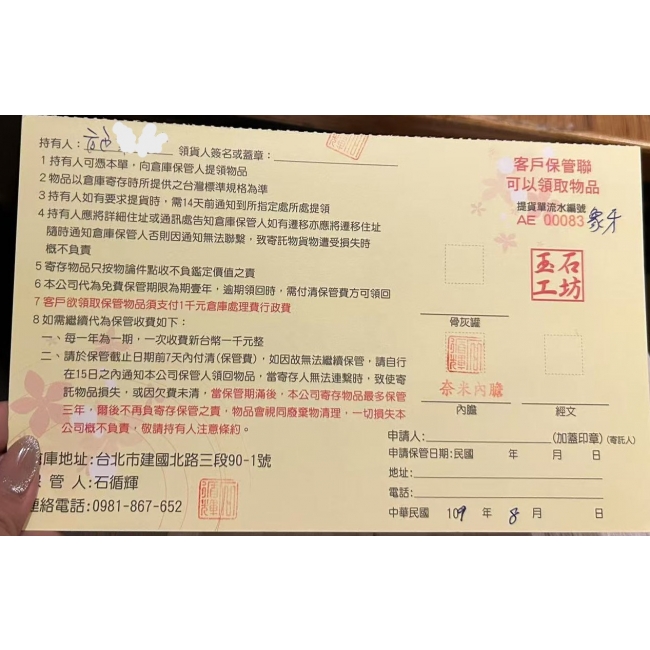 持有人：
領貨人簽名或蓋章：
1 持有人可憑本單，向倉庫保管人提領物品
2 物品以倉庫寄存時所提供之台灣標準規格為準
3 持有人如有要求提貨時，需14天前通知到所指定處所處提領
4 持有人應將詳細住址或通訊處告知倉庫保管人如有遷移亦應將遷移住址
隨時通知倉庫保管人否則因通知無法聯繫，致寄託物貨物遭受損失時
概不負責
5 寄存物品只按物論件點收不負鑑定價值之責
6 本公司代為免費保管期限為期壹年，逾期領回時，需付清保管費方可領回
7 客戶欲領取保管物品須支付1千元倉庫處理費行政費
8 如需繼續代為保管收費如下：
一、每一年為一期，一次收費新台幣一千元整
二、請於保管截止日期前7天內付清(保管費)，如因故無法繼續保管，請自行
在15日之內通知本公司保管人領回物品，當寄存人無法連繫時，致使寄
託物品損失，或因欠費未清，當保管期滿後，本公司寄存物品最多保管
三年，爾後不再負寄存保管之責，物品會視同廢棄物清理，一切損失本
公司概不負責，敬請持有人注意條約。
庫地址:台北市建國北路三段90-1號
管 人:石循輝
連絡電話:0981-867-652
客戶保管聯
可以領取物品
提貨單流水編號
AE 00083 象牙
玉石
工坊
骨灰罐
奈米內膽
內膽
經文
申請人: (加蓋印章) (寄託人)
申請保管日期:民國 年 月 日
地址:
電話:
中華民國 109 年 8 月 日